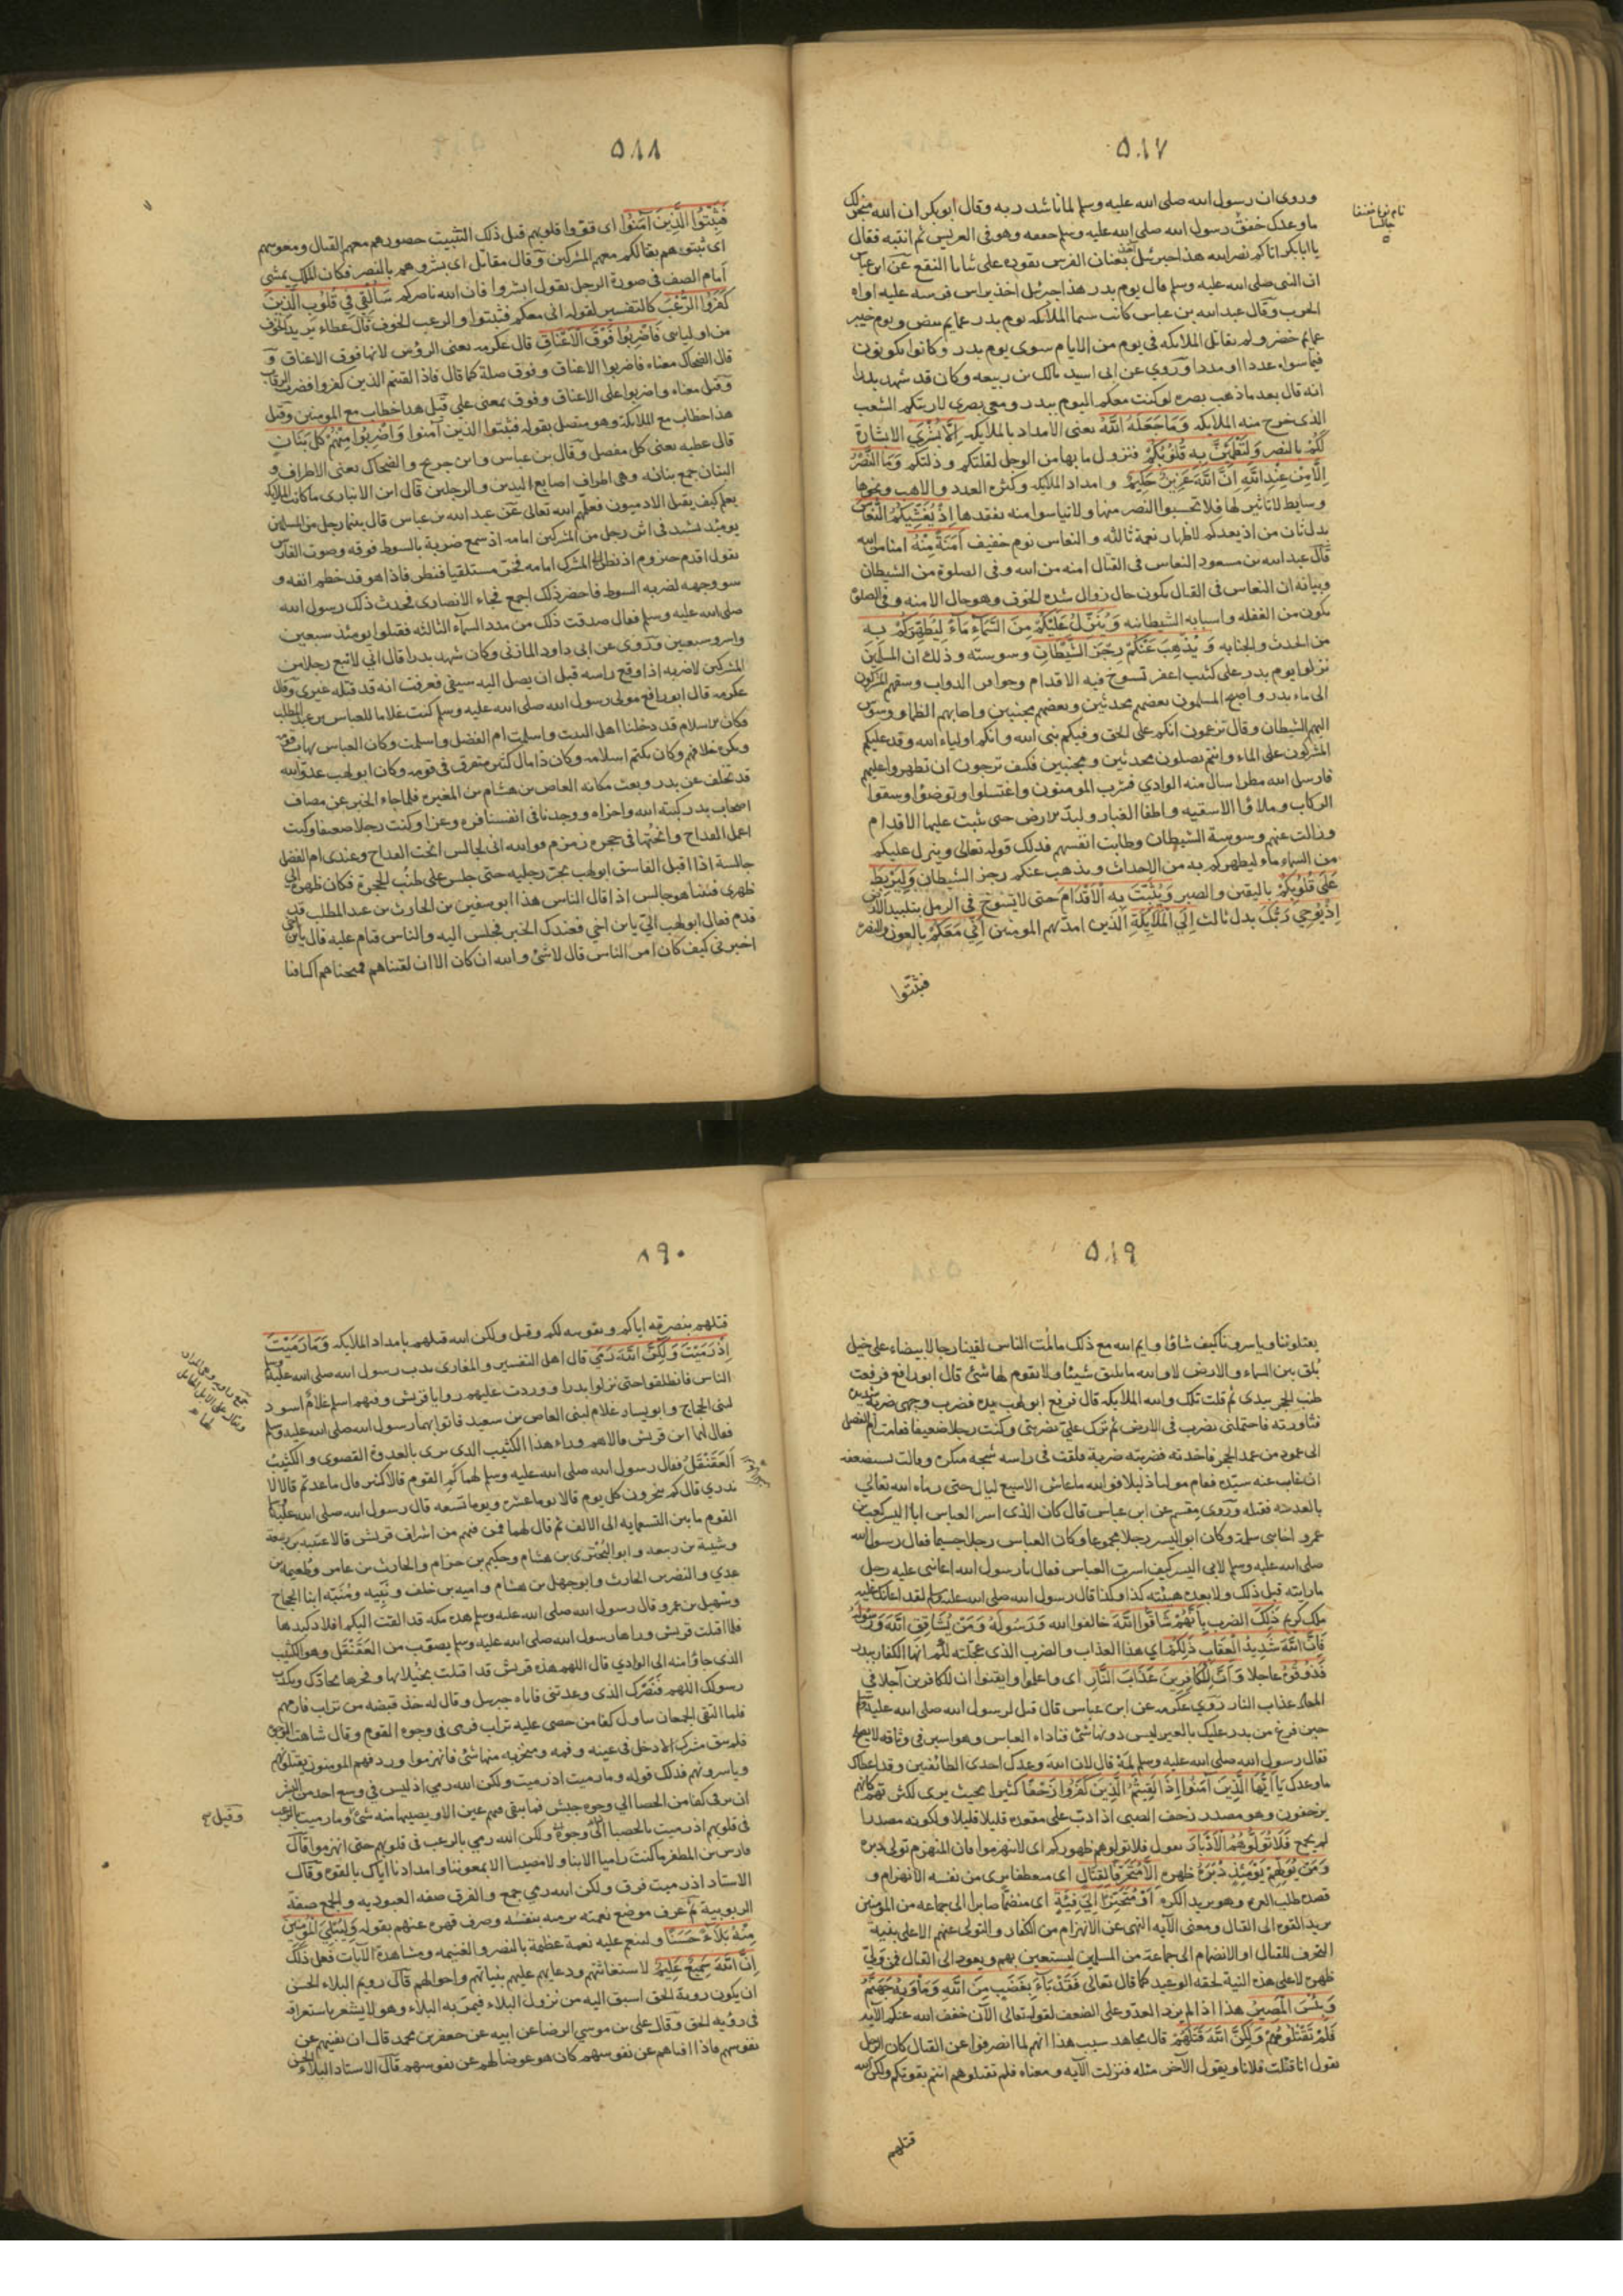 ٥٨٧
وروى ان رسول الله صلى الله عليه وسلم لما ناشد ربه وقال ابو بكر ان الله منجز لك
ما وعدك خفق رسول الله صلى الله عليه وسلم خفقه وهو فى العريش ثم انتبه فقال
يا ابا بكر اتاكم نصر الله هذا جبرئيل اخذ بعنان الفرس يقوده على ثناياه النقع عن ابن عباس
ان النبى صلى الله عليه وسلم قال يوم بدر هذا جبرئيل اخذ براس فرسه عليه اداه
الحرب وقال عبد الله بن عباس كانت سيما الملائكه يوم بدر عمايم بيض ويوم خيبر
عمايم خضر ولم يقاتل الملائكه فى يوم من الايام سوى يوم بدر وكانوا يكونون
فيما سواه عددا او مددا وروى عن ابى اسيد مالك بن ربيعه وكان قد شهد بدرا
انه قال بعد ما ذهب بصره لو كنت معكم اليوم ببدر ومعى بصرى لاريتكم الشعب
الذى خرج منه الملايكه وَمَا جَعَلَهُ اللَّهُ يعنى الامداد بالملايكه إِلَّا بُشْرَى الا بشارة
لَكُمْ بالنصر وَلِتَطْمَئِنَّ بِهِ قُلُوبُكُمْ فنزول ما بها من الوجل لقلتكم وذلتكم وَمَا النَّصْرُ
إِلَّا مِنْ عِنْدِ اللَّهِ إِنَّ اللَّهَ عَزِيزٌ حَكِيمٌ وامداد الملايكه وكثره العدد والاهب ونحوها
وسايط لا تاثير لها فلا تحسبوا النصر منها ولا تياسوا منه بفقدها إِذْ يُغَشِّيكُمُ النُّعَاسَ
بدل ثان من اذ يعدكم لاظهار نعمة ثالثه والنعاس نوم خفيف أَمَنَةً مِنْهُ امنا من الله
قال عبد الله بن مسعود النعاس فى القتال امنه من الله وفى الصلوة من الشيطان
وبيانه ان النعاس فى القتال يكون حال زوال شده الخوف وهو حال الامنه وفى الصلوة
يكون من الغفله واسبابه الشيطانيه وَيُنَزِّلُ عَلَيْكُمْ مِنَ السَّمَاءِ مَاءً لِيُطَهِّرَكُمْ بِهِ
من الحدث والجنابه وَيُذْهِبَ عَنْكُمْ رِجْزَ الشَّيْطَانِ وسوسته وذلك ان المسلمين
نزلوا يوم بدر على كثيب اعفر تسوخ فيه الاقدام وحوافر الدواب وسبقهم المشركون
الى ماء بدر واصبح المسلمون بعضهم محدثين وبعضهم مجنبين واصابهم الظما ووسوس
اليهم الشيطان وقال تزعمون انكم على الحق وفيكم نبى الله وانكم اولياء الله وقد غلبكم
المشركون على الماء وانتم تصلون محدثين ومجنبين فكيف ترجون ان تظهروا عليهم
فارسل الله مطرا سال منه الوادي فشرب المومنون واغتسلوا وتوضؤا وسقوا
الركاب وملاؤا الاسقيه واطفا الغبار ولبد الارض حتى ثبت عليها الاقدام
وزالت عنهم وسوسة الشيطان وطابت انفسهم فذلك قوله تعالى وينزل عليكم
من السماء ماء ليطهركم به من الاحداث ويذهب عنكم رجز الشيطان وَلِيَرْبِطَ
عَلَى قُلُوبِكُمْ باليقين والصبر وَيُثَبِّتَ بِهِ الْأَقْدَامَ حتى لا تسوخ فى الرمل بتلبيد الارض
إِذْ يُوحِي رَبُّكَ بدل ثالث إِلَى الْمَلَائِكَةِ الذين امد بهم المومنين أَنِّي مَعَكُمْ بالعون والنصر
فثبتوا
٥٨٨
فَثَبِّتُوا الَّذِينَ آمَنُوا اى قووا قلوبهم قيل ذلك التثبيت حضورهم معهم القتال ومعونتهم
اى ثبتوهم بقتالكم معهم المشركين وقال مقاتل اى بشروهم بالنصر فكان الملك يمشى
أمام الصف فى صورة الرجل يقول ابشروا فان الله ناصركم سَأُلْقِي فِي قُلُوبِ الَّذِينَ
كَفَرُوا الرُّعْبَ كالتفسير لقوله انى معكم فثبتوا والرعب الخوف قال عطاء يريد الخوف
من اوليائى فَاضْرِبُوا فَوْقَ الْأَعْنَاقِ قال عكرمه يعنى الرؤس لانها فوق الاعناق و
قال الضحاك معناه فاضربوا الاعناق وفوق صلة كما قال فاذا لقيتم الذين كفروا فضرب الرقاب
وقيل معناه واضربوا على الاعناق وفوق بمعنى على قيل هذا خطاب مع المومنين وقيل
هذا خطاب مع الملايكة وهو متصل بقوله فثبتوا الذين آمنوا وَاضْرِبُوا مِنْهُمْ كُلَّ بَنَانٍ
قال عطيه يعنى كل مفصل وقال بن عباس وابن جريج والضحاك يعنى الاطراف و
البنان جمع بنانه وهى اطراف اصابع اليدين والرجلين قال ابن الانبارى ما كانت الملايكه
يعلم كيف يقتل الادميون فعلمهم الله تعالى عن عبد الله بن عباس قال بينما رجل من المسلمين
يومئذ يشتد فى اثر رجل من المشركين امامه اذ سمع ضربة بالسوط فوقه وصوت الفارس
يقول اقدم حيزوم اذ نظر الى المشرك امامه فخر مستلقيا فنظر فاذا هو قد خطم انفه و
سو وجهه لضربه السوط فاخضر ذلك اجمع فجاء الانصارى فحدث ذلك رسول الله
صلى الله عليه وسلم فقال صدقت ذلك من مدد السماء الثالثه فقتلوا يومئذ سبعين
واسروا سبعين وروى عن ابى داود المازنى وكان شهد بدرا قال انى لاتبع رجلا من
المشركين لاضربه اذا وقع راسه قبل ان يصل اليه سيفى فعرفت انه قد قتله غيرى وقال
عكرمه قال ابو رافع مولى رسول الله صلى الله عليه وسلم كنت غلاما للعباس بن عبد المطلب
فكان الاسلام قد دخلنا اهل البيت واسلمت ام الفضل واسلمت وكان العباس يهاب قومه
ويكره خلافهم وكان يكتم اسلامه وكان ذا مال كثير متفرق فى قومه وكان ابو لهب عدو الله
قد تخلف عن بدر وبعث مكانه العاص بن هشام بن المغيره فلما جاء الخبر عن مصاف
اصحاب بدر كبته الله واخزاه ووجدنا فى انفسنا قوه وعزا وكنت رجلا ضعيفا وكنت
اعمل القداح وانحتها فى حجره زمزم فوالله انى لجالس انحت القداح وعندى ام الفضل
جالسة اذا اقبل الفاسق ابو لهب يجر رجليه حتى جلس على طنب الحجرة فكان ظهره الى
ظهرى فبينما هو جالس اذا قال الناس هذا ابو سفين بن الحارث بن عبد المطلب قد
قدم فقال ابو لهب الىّ يا ابن اخى فعندك الخبر فجلس اليه والناس قيام عليه قال يا ابن اخى
اخبرنى كيف كان امر الناس قال لا شئ والله ان كان الا ان لقيناهم فمنحناهم اكتافنا
٥٨٩
يقتلوننا وياسروننا كيف شاؤا وايم الله مع ذلك ما لمت الناس لقينا رجالا بيضاء على خيل
بلق بين السماء والارض لا والله ما يليق شيئا ولا تقوم لها شئ قال ابو رافع فرفعت
طنب الحجر بيدى ثم قلت تلك والله الملايكه قال فرفع ابو لهب يده فضرب وجهى ضربة شديدة
فثاورته فاحتملنى فضرب فى الارض ثم برك علىّ يضربنى وكنت رجلا ضعيفا فقامت ام الفضل
الى عمود من عمد الحجر فاخذته فضربته ضربة فلقت فى راسه شجه منكره وقالت تستضعفه
ان غاب عنه سيده فقام موليا ذليلا فوالله ما عاش الا سبع ليال حتى رماه الله تعالى
بالعدسه فقتله وروى مقسم عن ابن عباس قال كان الذى اسر العباس ابا اليسر كعب بن
عمرو اخا بنى سلمة وكان ابو اليسر رجلا مجموعا وكان العباس رجلا جسيما فقال رسول الله
صلى الله عليه وسلم لابى اليسر كيف اسرت العباس فقال يا رسول الله اعاننى عليه رجل
ما رايته قبل ذلك ولا بعده هيئته كذا وكذا قال رسول الله صلى الله عليه وسلم لقد اعانك عليه
ملك كريم ذَلِكَ الضرب بِأَنَّهُمْ شَاقُّوا اللَّهَ خالفوا الله وَرَسُولَهُ وَمَنْ يُشَاقِقِ اللَّهَ وَرَسُولَهُ
فَإِنَّ اللَّهَ شَدِيدُ الْعِقَابِ ذَلِكُمْ اى هذا العذاب والضرب الذى عجلته لكم ايها الكفار ببدر
فَذُوقُوهُ عاجلا وَأَنَّ لِلْكَافِرِينَ عَذَابَ النَّارِ اى واعلموا وايقنوا ان للكافرين آجلا فى
المعاد عذاب النار روى عكرمه عن ابن عباس قال قيل لرسول الله صلى الله عليه وسلم
حين فرغ من بدر عليك بالعير ليس دونها شئ فناداه العباس وهو اسير فى وثاقه لا يصلح
فقال رسول الله صلى الله عليه وسلم لمه قال لان الله وعدك احدى الطائفتين وقد اعطاك
ما وعدك يَا أَيُّهَا الَّذِينَ آمَنُوا إِذَا لَقِيتُمُ الَّذِينَ كَفَرُوا زَحْفًا كثيرا بحيث يرى لكثرتهم كانهم
يزحفون وهو مصدر زحف الصبى اذا دب على مقعده قليلا قليلا ولكونه مصدرا
لم يجمع فَلَا تُوَلُّوهُمُ الْأَدْبَارَ يقول فلا تولوهم ظهوركم اى لا تنهزموا فان المنهزم تولى دبره
وَمَنْ يُوَلِّهِمْ يَوْمَئِذٍ دُبُرَهُ ظهره إِلَّا مُتَحَرِّفًا لِقِتَالٍ اى منعطفا يرى من نفسه الانهزام و
قصده طلب الغره وهو يريد الكره أَوْ مُتَحَيِّزًا إِلَى فِئَةٍ اى منضما صابرا الى جماعه من المومنين
يريد القوه الى القتال ومعنى الآيه النهى عن الانهزام من الكفار والتولى عنهم الا على بنية
التحرف للقتال او الانضمام الى جماعة من المسلمين ليستعين بهم ويعود الى القتال فمن ولى
ظهره لا على هذه النية لحقه الوعيد كما قال تعالى فَقَدْ بَاءَ بِغَضَبٍ مِنَ اللَّهِ وَمَأْوَاهُ جَهَنَّمُ
وَبِئْسَ الْمَصِيرُ هذا اذا لم يزد العدو على الضعف لقوله تعالى الآن خفف الله عنكم الآيه
فَلَمْ تَقْتُلُوهُمْ وَلَكِنَّ اللَّهَ قَتَلَهُمْ قال مجاهد سبب هذا انهم لما انصرفوا عن القتال كان الرجل
يقول انا قتلت فلانا ويقول الآخر مثله فنزلت الآيه ومعناه فلم تقتلوهم انتم بقوتكم ولكن الله
قتلهم
٨٩٠
قتلهم بنصرته اياكم وتقويته لكم وقيل ولكن الله قتلهم بامداد الملايكه وَمَا رَمَيْتَ
إِذْ رَمَيْتَ وَلَكِنَّ اللَّهَ رَمَى قال اهل التفسير والمغازى ندب رسول الله صلى الله عليه وسلم
الناس فانطلقوا حتى نزلوا بدرا ووردت عليهم روايا قريش وفيهم اسلم غلام اسود
لبنى الحجاج وابو يسار غلام لبنى العاص بن سعيد فاتوا بهما رسول الله صلى الله عليه وسلم
فقال لهما اين قريش قالا هم وراء هذا الكثيب الذى يرى بالعدوة القصوى والكثيب
العَقَنْقَلُ فقال رسول الله صلى الله عليه وسلم لهما كم القوم قالا كثير قال ما عدتهم قالا لا
ندري قال كم ينحرون كل يوم قالا يوما عشره ويوما تسعه قال رسول الله صلى الله عليه وسلم
القوم ما بين التسعمايه الى الالف ثم قال لهما فمن فيهم من اشراف قريش قالا عتبه بن ربيعة
وشيبة بن ربيعه وابو البختري بن هشام وحكيم بن حزام والحارث بن عامر وطعيمه بن
عدي والنضر بن الحارث وابو جهل بن هشام واميه بن خلف ونبيه ومنبه ابنا الحجاج
وسهيل بن عمرو قال رسول الله صلى الله عليه وسلم هذه مكه قد القت اليكم افلاذ كبدها
فلما اقبلت قريش وراها رسول الله صلى الله عليه وسلم يصوب من العقنقل وهو الكثيب
الذى جاؤا منه الى الوادي قال اللهم هذه قريش قد اقبلت بخيلائها وفخرها تحادك وتكذب
رسولك اللهم فنصرك الذى وعدتنى فاتاه جبريل وقال له خذ قبضه من تراب فارمهم
فلما التقى الجمعان تناول كفا من حصى عليه تراب فرمى فى وجوه القوم وقال شاهت الوجوه
فلم يبق مشرك الا دخل فى عينه وفمه ومنخريه منها شئ فانهزموا وردفهم المومنون يقتلونهم
وياسرونهم فذلك قوله وما رميت اذ رميت ولكن الله رمى اذ ليس فى وسع احد من البشر
ان يرمى كفا من الحصا الى وجوه جيش فما يبقى فيهم عين الا ويصيبها منه شئ وما رميت بالرعب
فى قلوبهم اذ رميت بالحصبا الى وجوههم ولكن الله رمى بالرعب فى قلوبهم حتى انهزموا قال
فارس بن المظفر ما كنت راميا الا بنا ولا مصيبا الا بمعونتنا وامدادنا اياك بالقوه وقال
الاستاد اذ رميت فرق ولكن الله رمى جمع والفرق صفه العبوديه والجمع صفة
الربوبية ثم عرف موضع نعمته برميه بنفسه وصرف قهره عنهم بقوله وَلِيُبْلِيَ الْمُؤْمِنِينَ
مِنْهُ بَلَاءً حَسَنًا ولينعم عليه نعمة عظيمة بالنصر والغنيمه ومشاهدة الآيات فعل ذلك
إِنَّ اللَّهَ سَمِيعٌ عَلِيمٌ لاستغاثتهم ودعايهم عليم بنياتهم واحوالهم قال رويم البلاء الحسن
ان يكون روية الحق اسبق اليه من نزول البلاء فيمر به البلاء وهو لا يشعر باستغراقه
فى رؤيه الحق وقال على بن موسى الرضا عن ابيه عن جعفر بن محمد قال ان يفنيهم عن
نفوسهم فاذا افناهم عن نفوسهم كان هو عوضا لهم عن نفوسهم قال الاستاد البلاء الحسن
وقيل